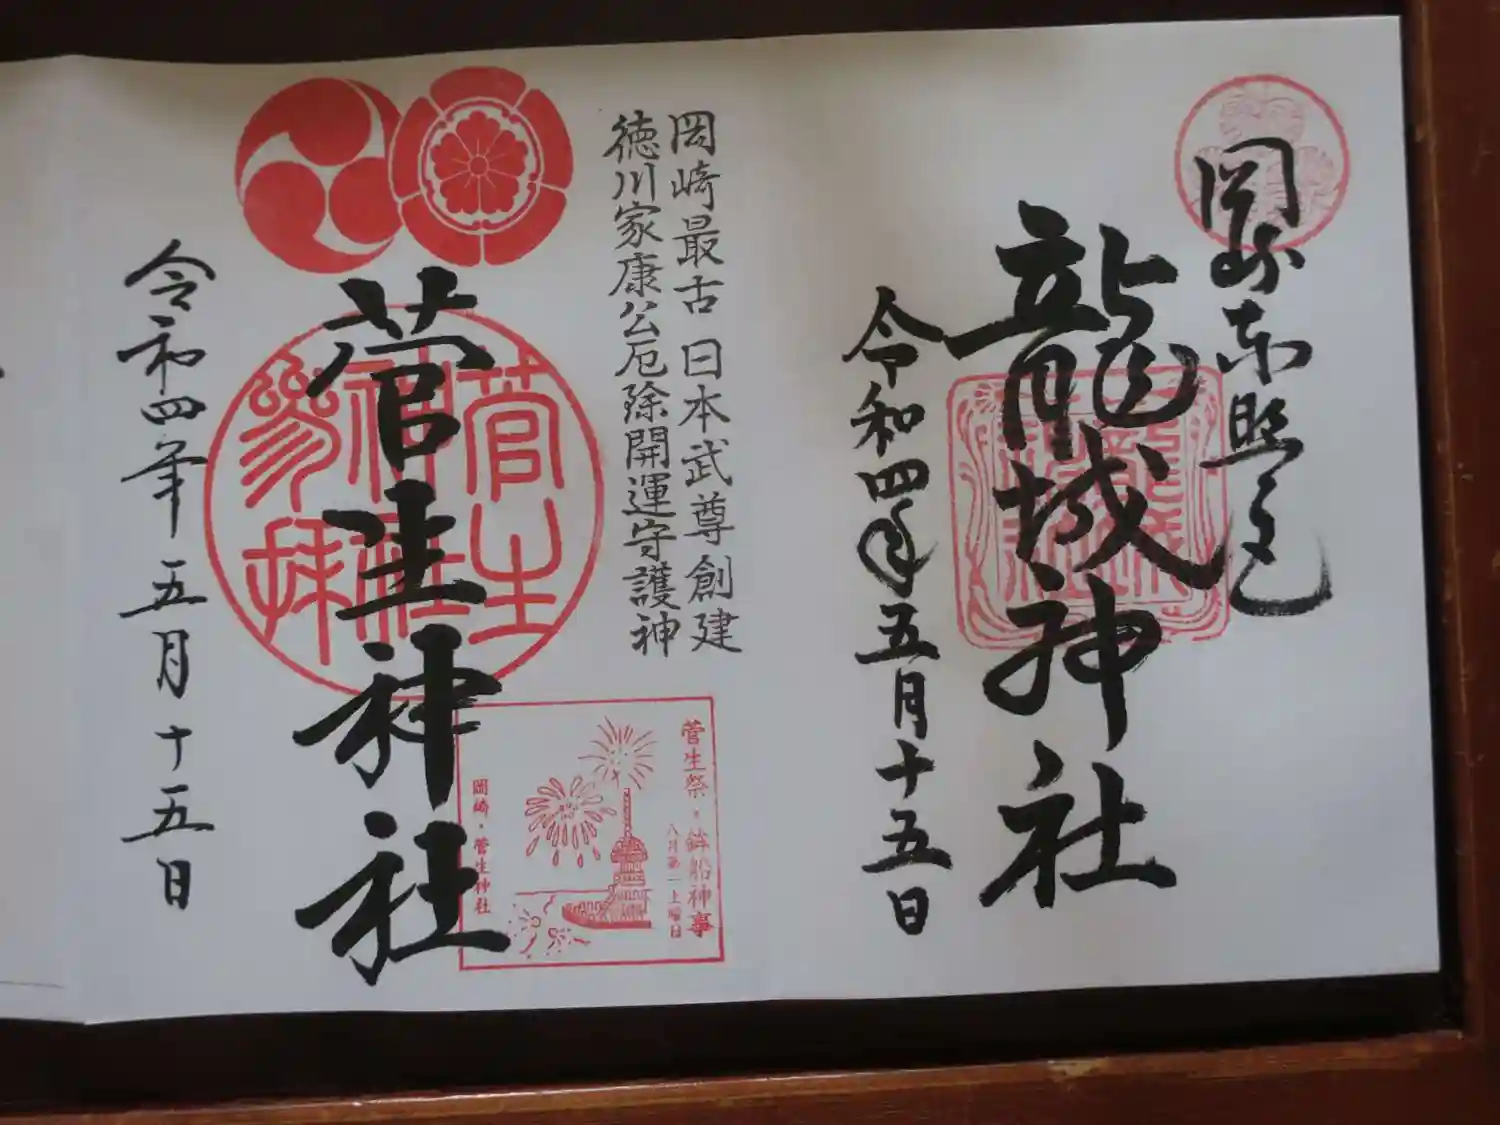 岡崎東照宮
龍城神社
令和四年五月十五日
岡崎最古 日本武尊創建
徳川家康公厄除開運守護神
菅生神社
菅生
神社
参拝
令和四年五月十五日
菅生祭・鉾船神事
八月第一土曜日
岡崎・菅生神社